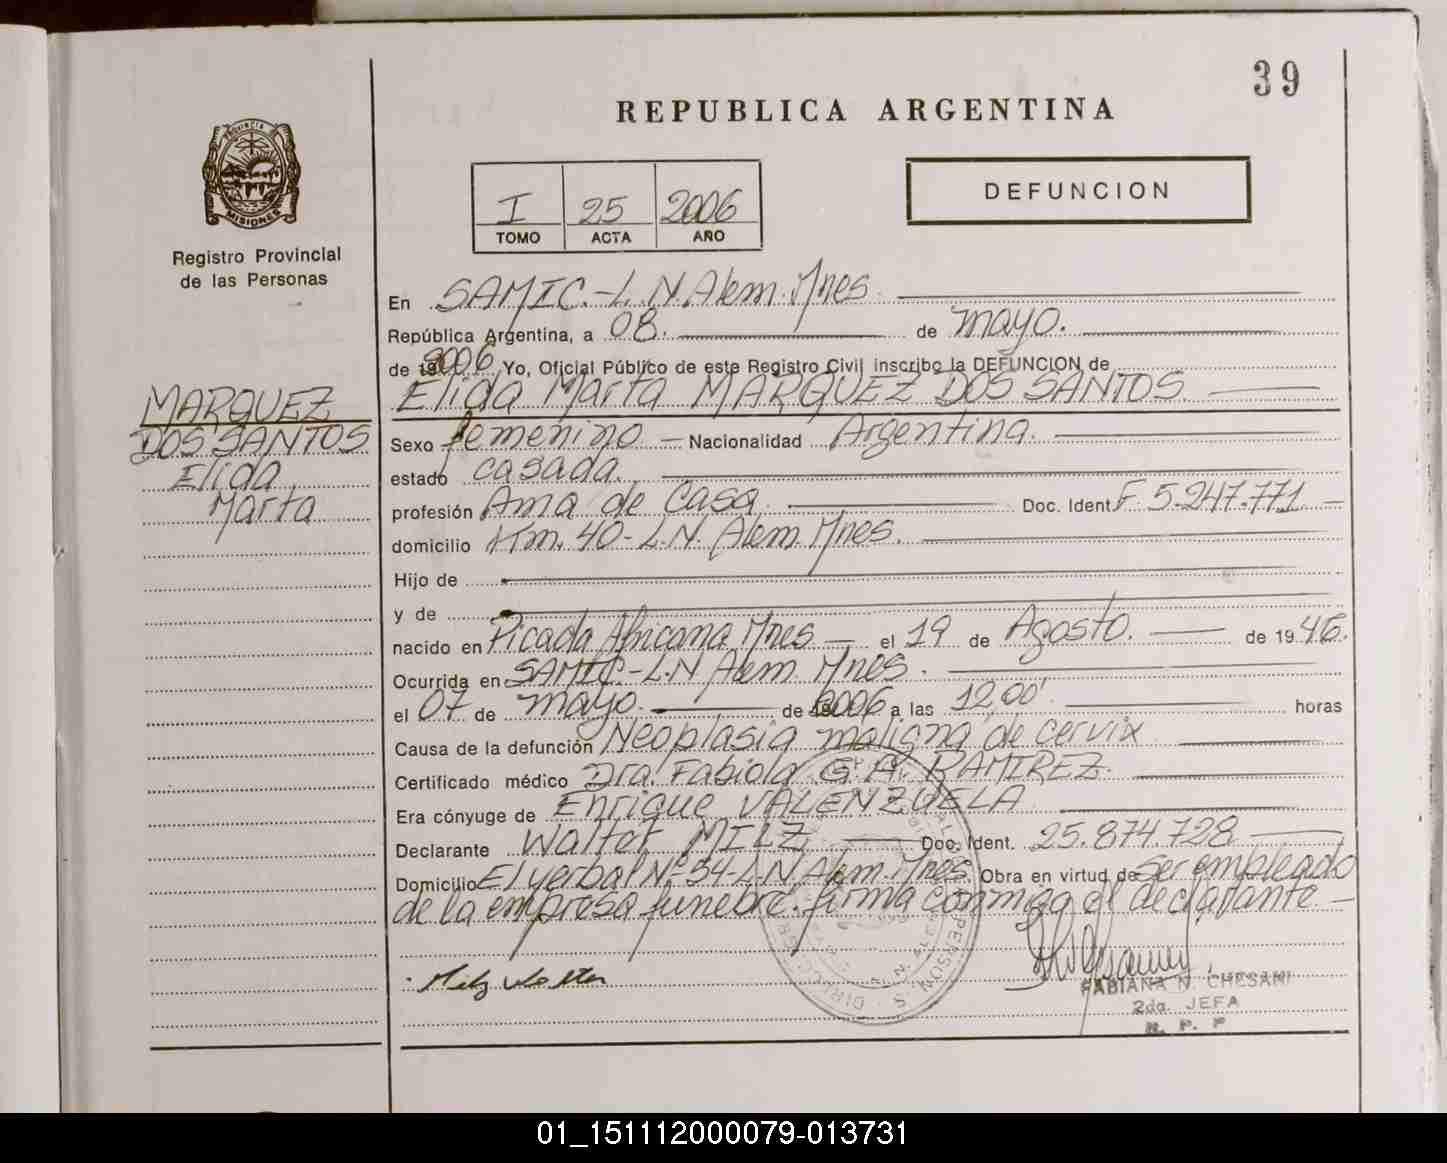 39
REPUBLICA ARGENTINA
PROVINCIA
MISIONES
Registro Provincial
de las Personas
I 25 2006
TOMO ACTA AÑO
DEFUNCION
En SAMIC.-L.N.Alem.Mnes.
República Argentina, a 08. de mayo.
de 2006 Yo, Oficial Público de este Registro Civil inscribo la DEFUNCION de
Elida Marta MARQUEZ DOS SANTOS.
MARQUEZ
DOS SANTOS
Elida
Marta
Sexo femenino — Nacionalidad Argentina.
estado casada.
profesión Ama de Casa Doc. Ident F. 5.247.771 —
domicilio Km. 40- L.N. Alem. Mnes.
Hijo de
y de
nacido en Picada Africana Mnes — el 19 de Agosto. — de 1946.
Ocurrida en SAMIC.-L.N Alem Mnes.
el 07 de mayo. de 2006 a las 12,00' horas
Causa de la defunción Neoplasia maligna de cervix
Certificado médico Dra. Fabiola G. A. RAMIREZ.
Era cónyuge de Enrique VALENZUELA
Declarante Walter MILZ — Doc. Ident. 25.874.728 —
Domicilio El yerbal Nº 54-L.N. Alem. Mnes. Obra en virtud de Ser empleado
de la empresa funebre. firma conmigo el declarante —
Milz Walter
FABIANA N. CHESANI
2da. JEFA
R. P. P
01_151112000079-013731